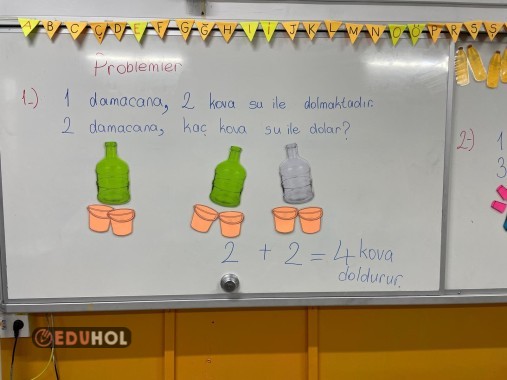 A B C Ç D E F G Ğ H I İ J K L M N O Ö P R S Ş
Problemler
1-) 1 damacana, 2 kova su ile dolmaktadır.
2 damacana, kaç kova su ile dolar?
2 + 2 = 4 kova
doldurur.
2-) 1
3
EDUHOL